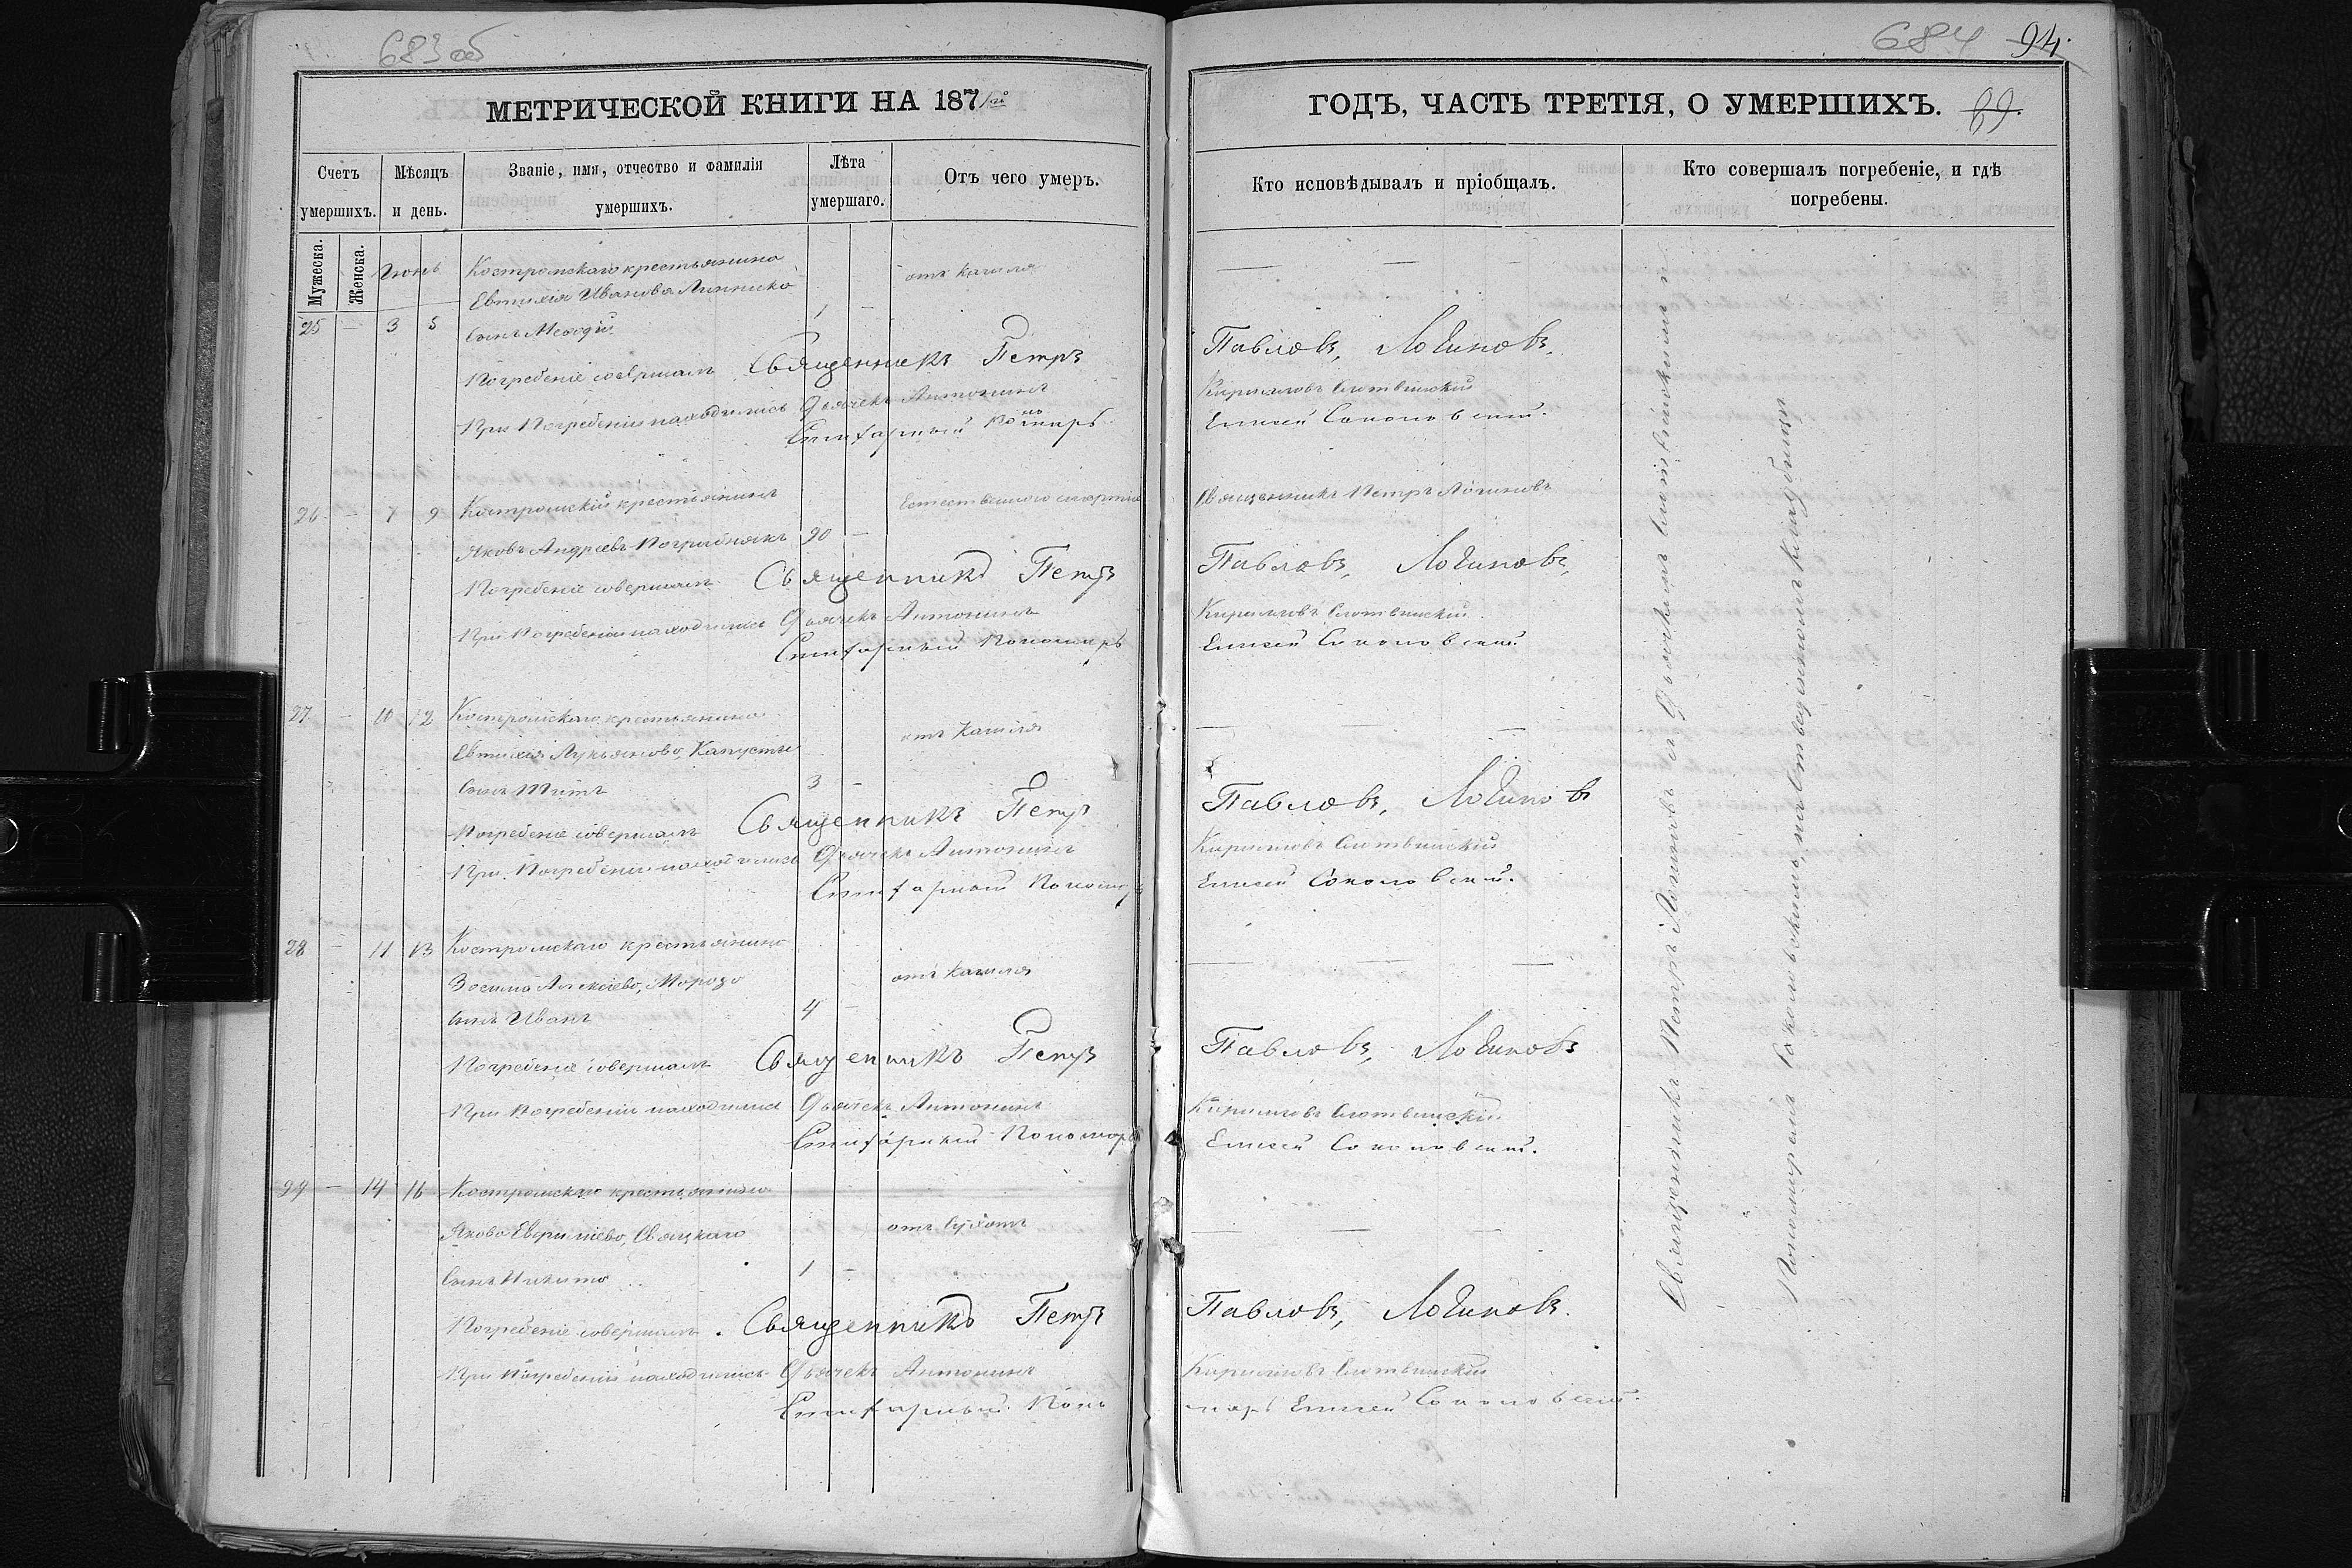 683 об
МЕТРИЧЕСКОЙ КНИГИ НА 1871й
Счетъ умершихъ.
Мѣсяцъ и день.
Званіе, имя, отчество и фамилія умершихъ.
Лѣта умершаго.
Отъ чего умеръ.
Мужеска.
Женска.
Іюнь
25 — 3 5
Костромскаго крестьянина
Евтихія Иванова
сынъ Меѳодій
1 —
отъ кашля
Погребеніе совершалъ Священникъ Петръ
При Погребеніи находились Дьячекъ Антонинъ
Епифарный Пономарь
26 — 7 9
Костромскій крестьянинъ
Яковъ Андреевъ
90 —
Естественною смертію
Погребеніе совершалъ Священникъ Петръ
При Погребеніи находились Дьячекъ Антонинъ
Пономарь
27 — 10 12
Костромскаго крестьянина
Евтихія Лукьянова, Капусты
сынъ Титъ
3 —
отъ Кашля
Погребеніе совершалъ Священникъ Петръ
При Погребеніи находились Дьячекъ Антонинъ
Пономарь
28 — 11 13
Костромскаго крестьянина
Зосима Алексіева, Мороза
сынъ Иванъ
4 —
отъ Кашля
Погребеніе совершалъ Священникъ Петръ
При Погребеніи находились Дьячекъ Антонинъ
Пономарь
29 — 14 16
Костромскаго крестьянина
Якова
сынъ Никита
1 —
отъ Сухотъ
Погребеніе совершалъ Священникъ Петръ
При Погребеніи находились Дьячекъ Антонинъ
Поно
684 94.
ГОДЪ, ЧАСТЬ ТРЕТІЯ, О УМЕРШИХЪ. 69.
Кто исповѣдывалъ и пріобщалъ.
Кто совершалъ погребеніе, и гдѣ погребены.
— — —
Павловъ, Логиновъ.
Кирилловъ Слотвинскій
Елисей Соколовский.
Священникъ Петръ Логиновъ
Павловъ, Логиновъ,
Кирилловъ Слотвинскій
Елисей Соколовский
— — —
Павловъ, Логиновъ
Кирилловъ Слотвинскій
Елисей Соколовский.
— — —
Павловъ, Логиновъ
Кирилловъ Слотвинскій
Елисей Соколовский.
— — —
Павловъ, Логиновъ.
Кирилловъ Слотвинскій
марь Елисей Соколовский.
Священникъ Петръ Логиновъ съ Дьячкомъ Слотвинскимъ и
Пономаремъ Соколовскимъ, на отведенномъ кладбищѣ